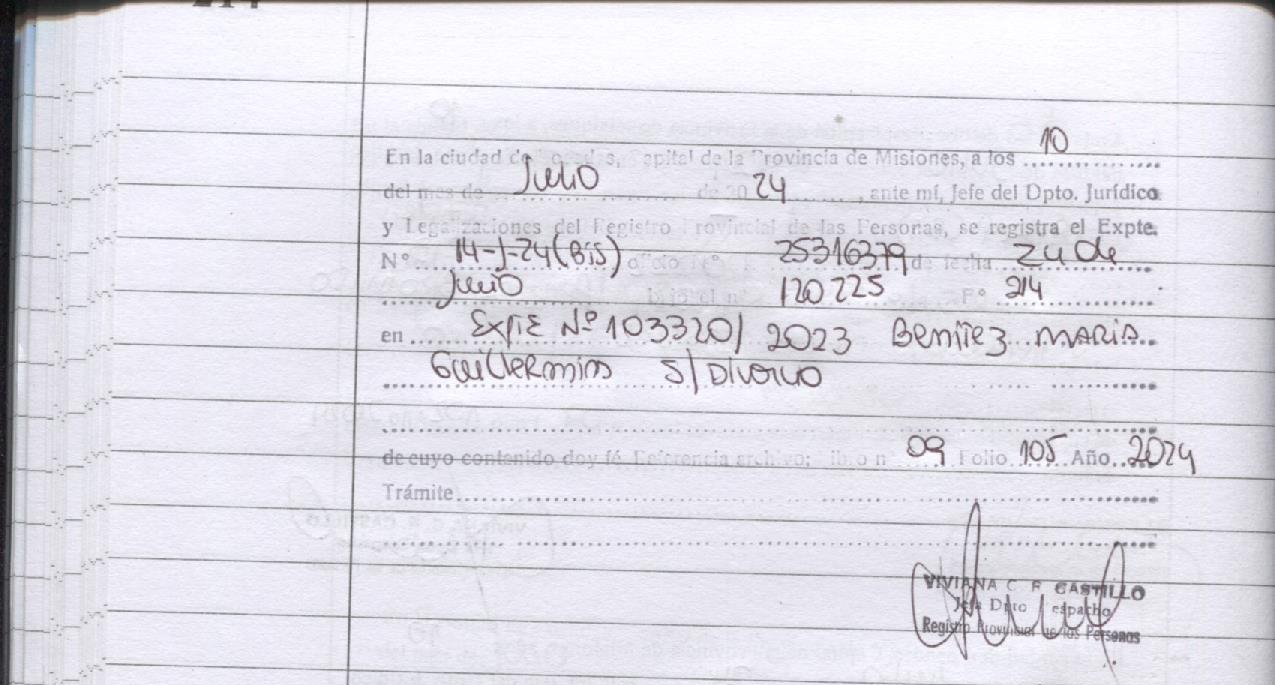 214
En la ciudad de Posadas, Capital de la Provincia de Misiones, a los 10
del mes de Julio de 2024, ante mí, Jefe del Dpto. Jurídico
y Legalizaciones del Registro Provincial de las Personas, se registra el Expte.
N° 14-J-24(Bis) oficio N° 25316379 de fecha 24 de
Junio bajo el n° 120225 F° 214
en Expte Nº 103320/2023 Benitez Maria
Guillermina S/ Divorcio
de cuyo contenido doy fé. Referencia archivo; libro n° 09 Folio 105 Año 2024
Trámite
VIVIANA C. R. CASTILLO
Jefa Dpto Despacho
Registro Provincial de las Personas